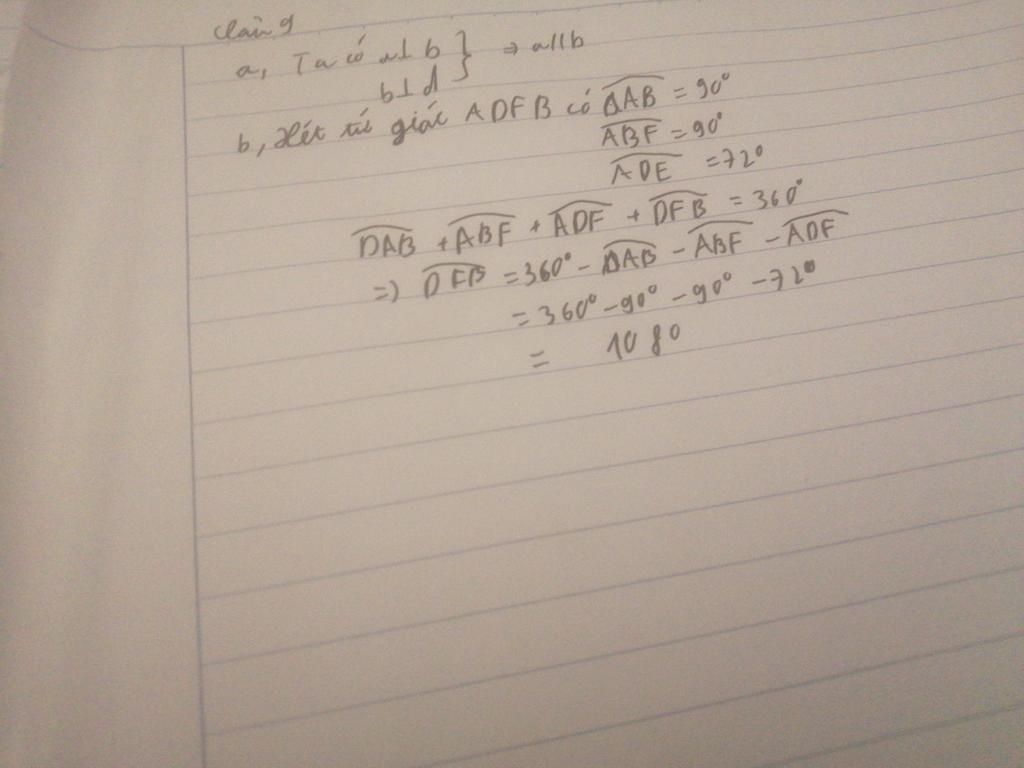 Câu 9
a, Ta có a⊥b } ⇒ a//b
b⊥d
b, Xét tứ giác ADFB có DAB = 90°
ABF = 90°
ADE = 72°
DAB + ABF + ADF + DFB = 360°
=) DFB = 360° - DAB - ABF - ADF
= 360° - 90° - 90° - 72°
= 1080